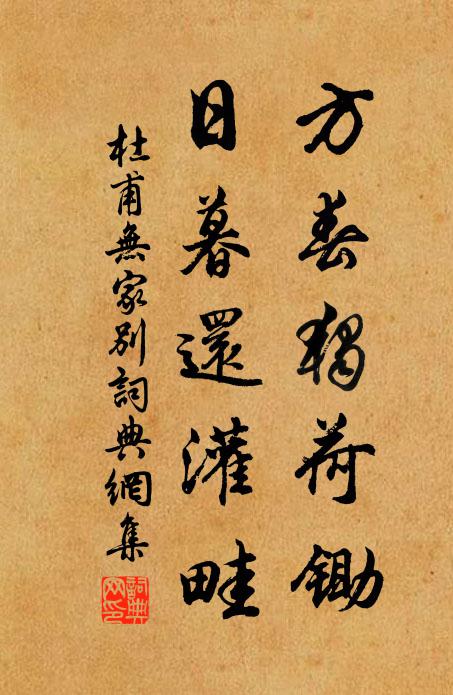 方春獨荷鋤
日暮還灌畦
杜甫無家別詞典網集
詞典
网印